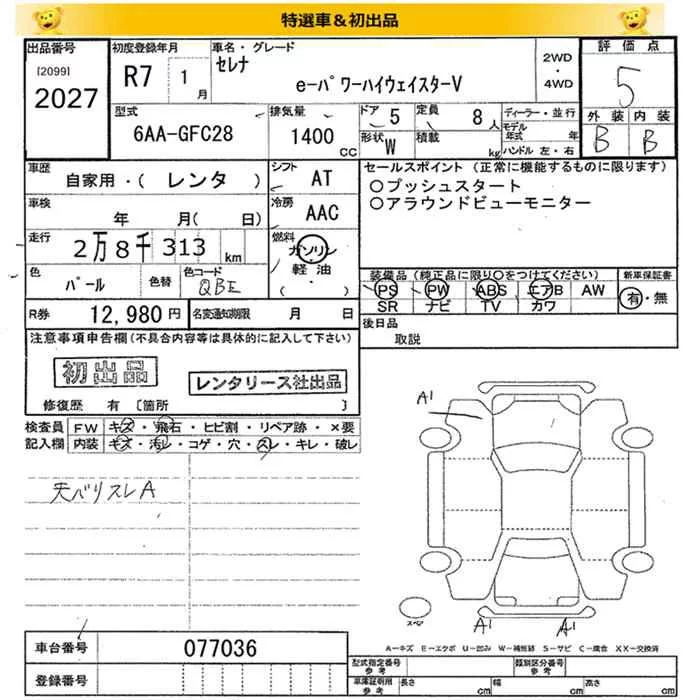 特選車＆初出品
出品番号
[2099]
2027
初度登録年月
R7 1月
車名・グレード
セレナ
e-パワーハイウェイスターV
2WD
・
4WD
評価点
5
外装 内装
B B
型式
6AA-GFC28
排気量
1400 CC
ドア 5
定員 8人
形状 W
積載 kg
ディーラー・並行
モデル年式 年
ハンドル 左・右
車歴
自家用・( レンタ )
シフト
AT
車検
年 月( 日)
冷房
AAC
走行
2万8千313 km
燃料
ガソリン
・
軽油
( ・ )
色
パール
色替
色コード
QBE
セールスポイント (正常に機能するものに限ります)
○プッシュスタート
○アラウンドビューモニター
装備品 (純正品に限り○をつけてください)
PS PW ABS エアB AW
SR ナビ TV カワ
新車保証書
有・無
R券 12,980円
名変通知期限 月 日
後日品
取説
注意事項申告欄(不具合内容等は具体的に記入して下さい)
初出品
レンタリース社出品
修復歴 有 〔箇所 〕
検査員記入欄
FW キズ・飛石・ヒビ割・リペア跡・×要
内装 キズ・汚レ・コゲ・穴・スレ・キレ・破レ
天バリスレA
A1
A1
A1
スペア
A－キズ E－エクボ U－凹み W－補修跡 S－サビ C－腐合 XX－交換済
車台番号
077036
登録番号
型式指定番号
参考
類別区分番号
参考
車庫証明用
参考
長さ cm
幅 cm
高さ cm